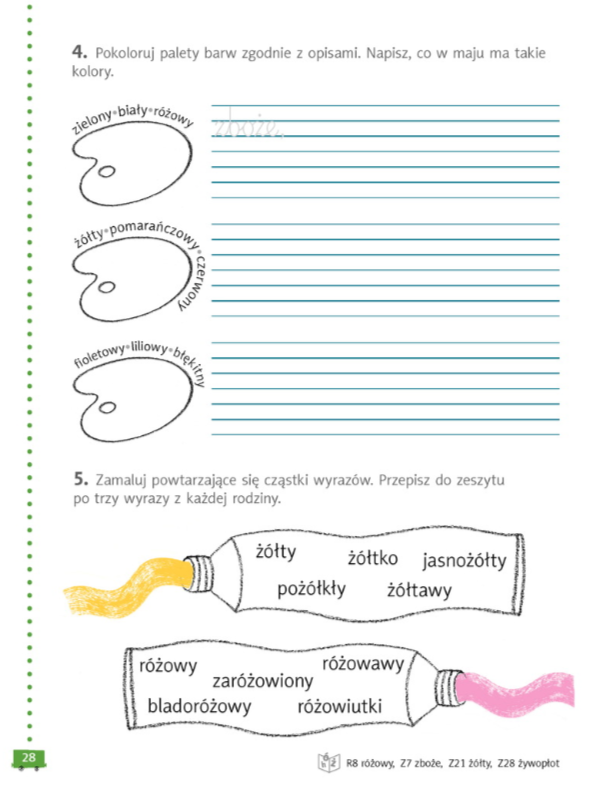 4. Pokoloruj palety barw zgodnie z opisami. Napisz, co w maju ma takie
kolory.
zielony•biały•różowy
zboże,
żółty•pomarańczowy•czerwony
fioletowy•liliowy•błękitny
5. Zamaluj powtarzające się cząstki wyrazów. Przepisz do zeszytu
po trzy wyrazy z każdej rodziny.
żółty żółtko jasnożółty
pożółkły żółtawy
różowy różowawy
zaróżowiony
bladoróżowy różowiutki
28
R8 różowy, Z7 zboże, Z21 żółty, Z28 żywopłot